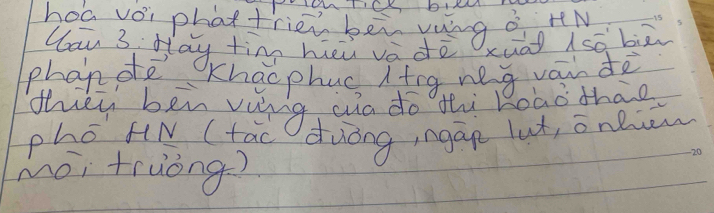 hóa với phát triển bền vững ở HN
Câu 3: Hãy tìm hiểu và đề xuất 1 số biện
pháp để khắc phục 1 trg nhg vấn đề
thiếu bền vững của đô thị hoá ở thành
phố HN (tắc đường, ngập lụt, ô nhiễm
môi trường)
15
20